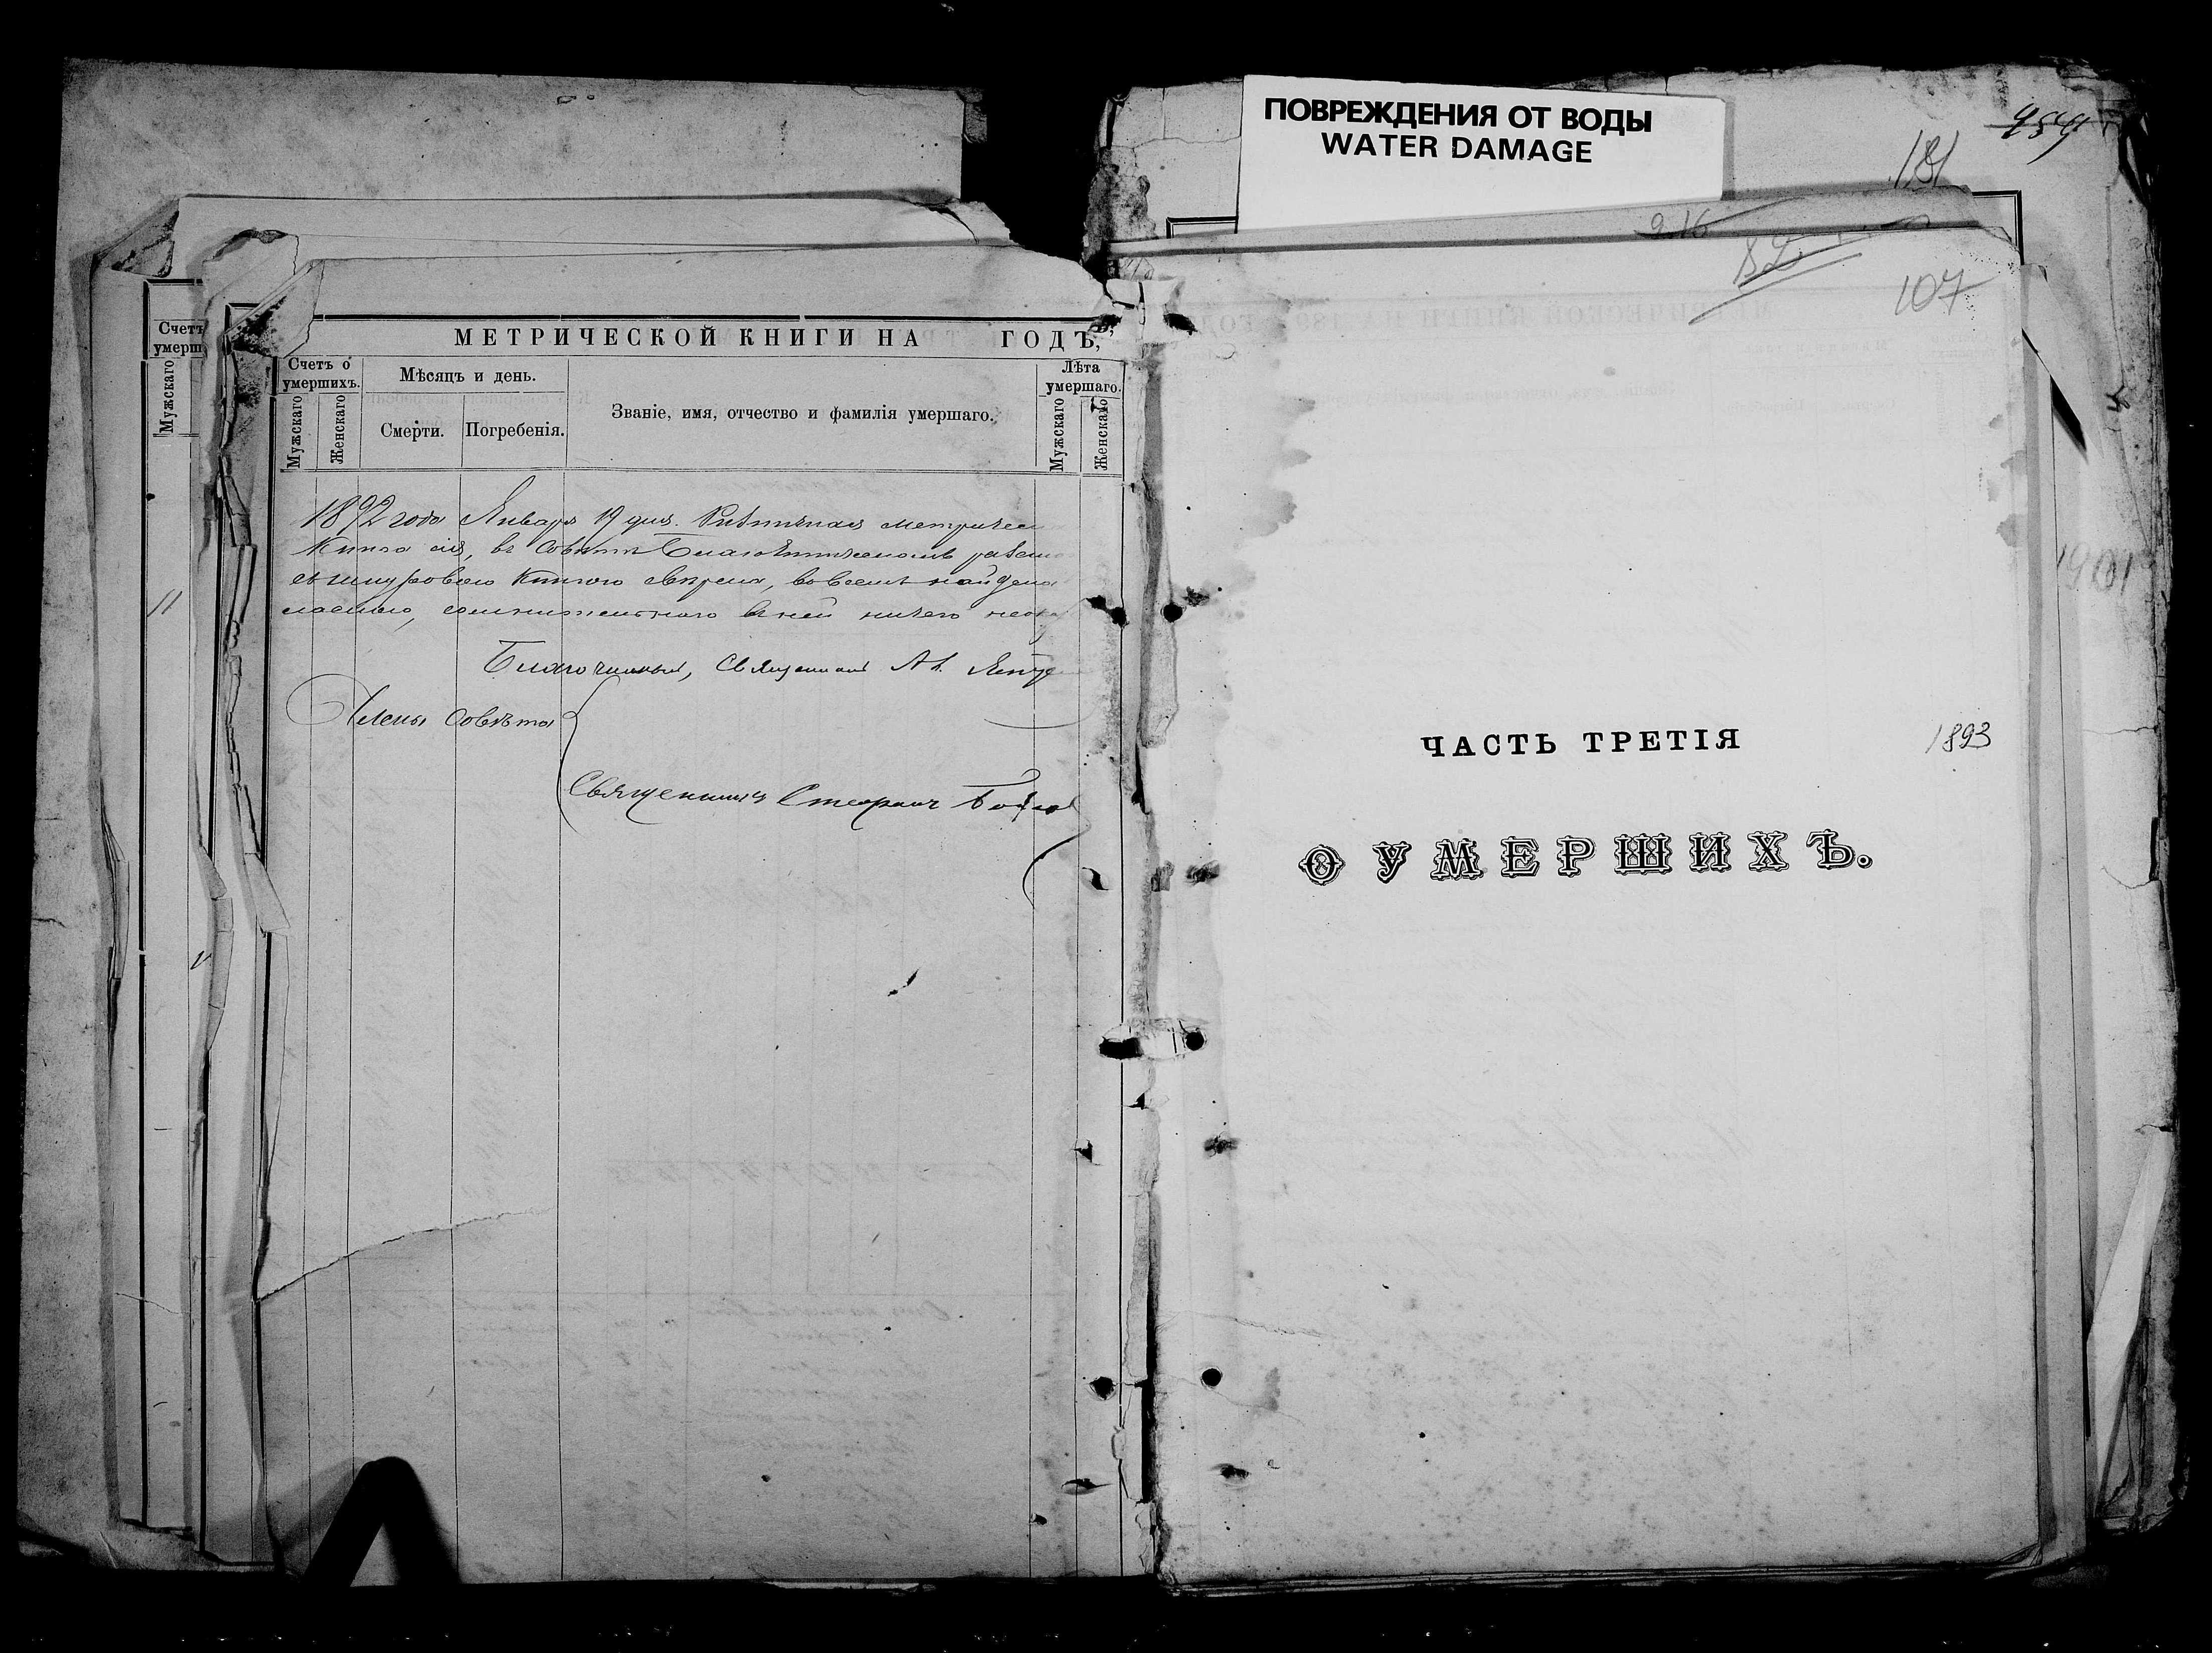 ПОВРЕЖДЕНИЯ ОТ ВОДЫ
WATER DAMAGE
Счетъ
умерш
Мужскаго
11
МЕТРИЧЕСКОЙ КНИГИ НА ГОДЪ,
Счетъ
умершихъ.
Мѣсяцъ и день.
Званіе, имя, отчество и фамилія умершаго.
Лѣта
умершаго.
Мужскаго
Женскаго
Смерти.
Погребенія.
Мужскаго
Женскаго
1892 года Января 19 дня.
Книга сія, въ Совѣтѣ
шнуровою Книгою свѣрена, во всемъ найдена
гласною, сомнительного въ ней ничего
Благочинный, Священникъ
Члены Совѣта
Священникъ Стефанъ
454
181
916
82
107
ЧАСТЬ ТРЕТІЯ
1893
О УМЕРШИХЪ.